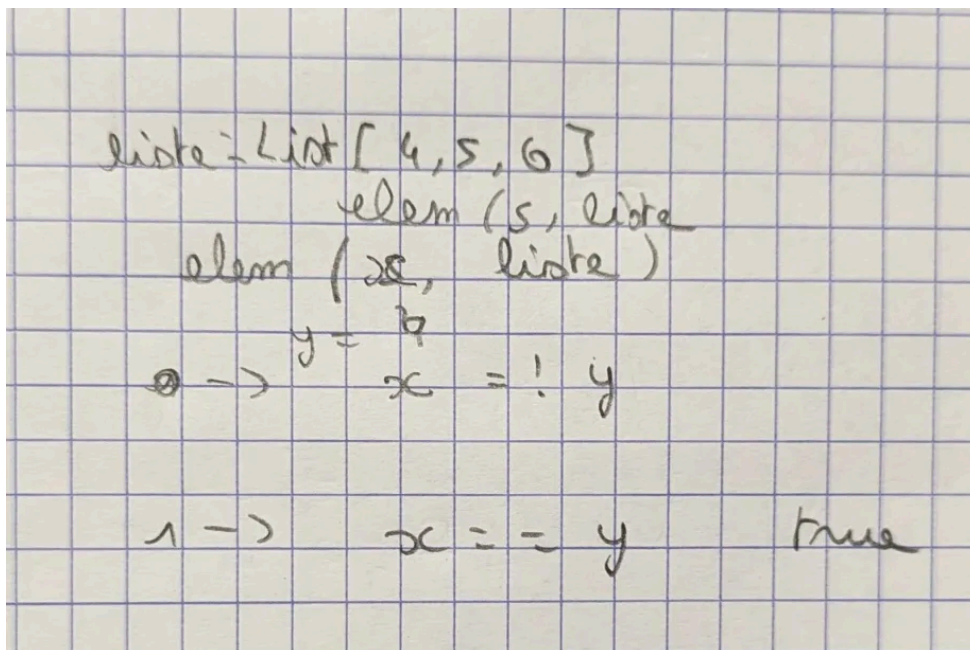 liste = List [ 4, 5, 6 ]
elem (5, liste
elem ( x, liste )
y = 4
0 -> x = ! y
1 -> x = = y true